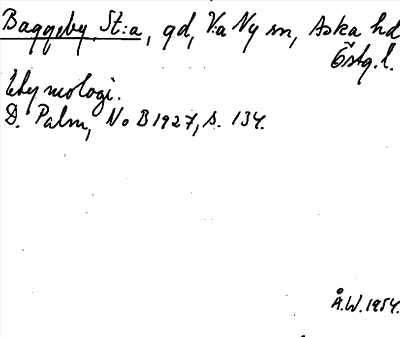 Baggeby St:a, gd, V:a Ny sn, Aska hd
Östg.l.
Etymologi.
D. Palm, NoB 1927, s. 134.
Å.W. 1954.